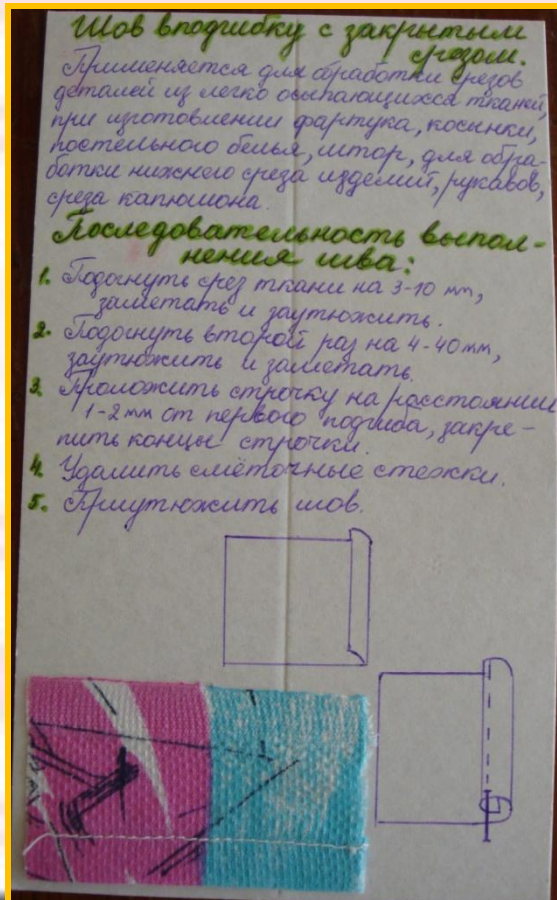 Шов вподгибку с закрытым
срезом.
Применяется для обработки срезов
деталей из легко осыпающихся тканей,
при изготовлении фартука, косынки,
постельного белья, штор, для обра-
ботки нижнего среза изделий, рукавов,
среза капюшона.
Последовательность выпол-
нения шва:
1. Подогнуть срез ткани на 3-10 мм,
заметать и заутюжить.
2. Подогнуть второй раз на 4-40мм,
заутюжить и заметать.
3. Проложить строчку на расстоянии
1-2мм от первого подгиба, закре-
пить концы строчки.
4. Удалить смёточные стежки.
5. Приутюжить шов.